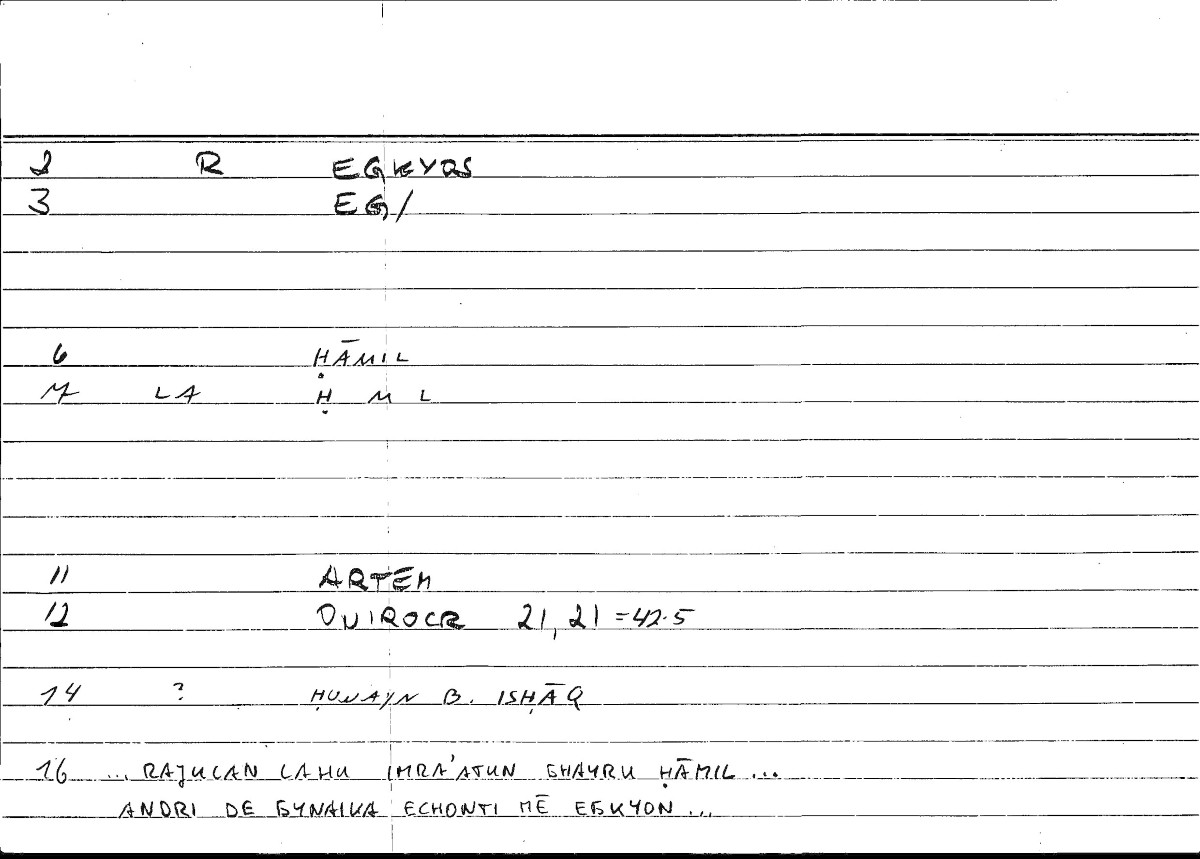 2 R EGKYOS
3 EG/
6 ḤĀMIL
7 LA Ḥ M L
11 ARTEM
12 ONIROCR 21, 21 = 42.5
14 ? ḤUNAYN B. ISḤĀQ
16 ... RAJULAN LAHU IMRA'ATUN GHAYRU ḤĀMIL ...
ANDRI DE GYNAIKA ECHONTI MĒ EGKYON ...